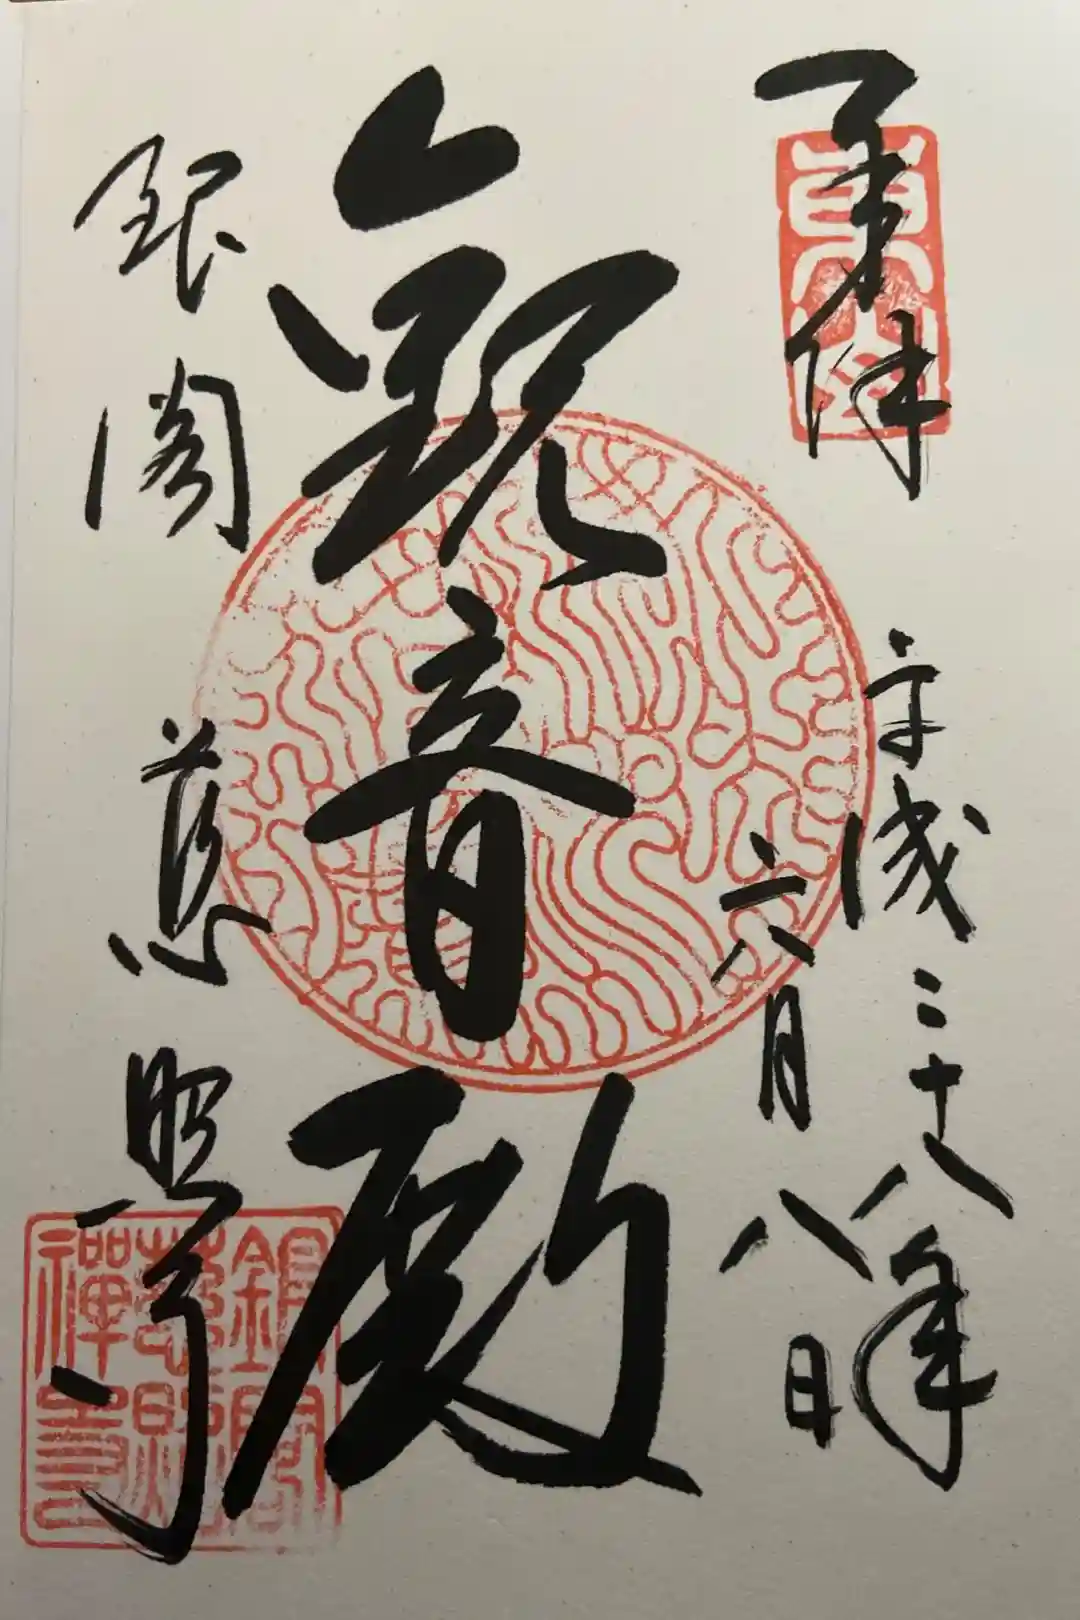 奉拝
東山
平成二十八年
六月八日
観音殿
銀閣
慈照寺
銀閣
慈照
禅寺